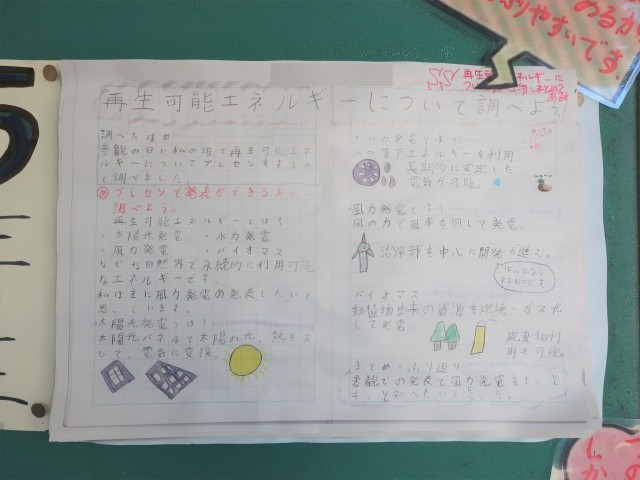 再生可能エネルギーについて調べよう!
調べた理由
参観の日に私の班で再生可能エネ
ルギーについてプレゼンをするの
で調べました。
プレゼンで発表ができるよ
調べよう。
再生可能エネルギーとは?
・太陽光発電 ・水力発電
・風力発電 ・バイオマス
などな自然界で永続的に利用可能
なエネルギーです。
私は主に風力発電の発表したいと
思っています。
太陽光発電とは?
太陽光パネルで太陽の光、熱を
びて、電気に変換。
・水力発電とは?
下エネルギーを利用。
長期的に安定した
電気が可能。
風力発電とは?
風の力で風車を回して発電。
沿岸部を中心に開発が進む。
バイオマス
動植物由来の資源を燃焼・ガス化
して発電。
廃棄物利
用も可能
まとめ・ふり返り
参観での発表で風力発電をもっと
もっと調べたいでした。
再生可能エネルギーに
やすいです。